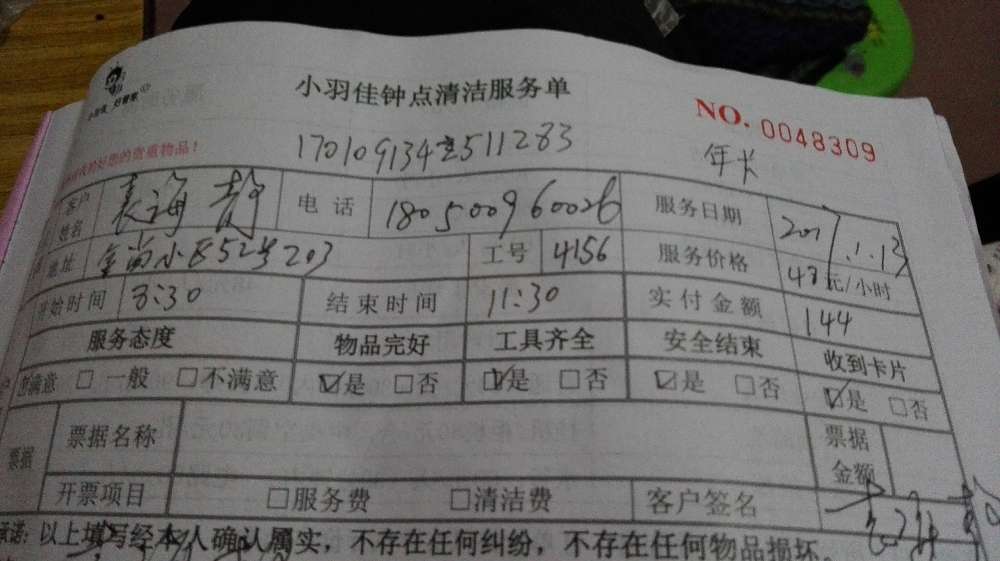 小羽佳钟点清洁服务单
NO. 0048309
好您的贵重物品！
年卡
客户姓名 海静 电话 180500960026 服务日期 2017.1.13
地址 金尚小区52号203 工号 4156 服务价格 48元/小时
开始时间 8:30 结束时间 11:30 实付金额 144
服务态度 物品完好 工具齐全 安全结束 收到卡片
满意 □一般 □不满意 ☑是 □否 ☑是 □否 ☑是 □否 ☑是 □否
票据 票据名称 票据金额
开票项目 □服务费 □清洁费 客户签名
承诺：以上填写经本人确认属实，不存在任何纠纷，不存在任何物品损坏。